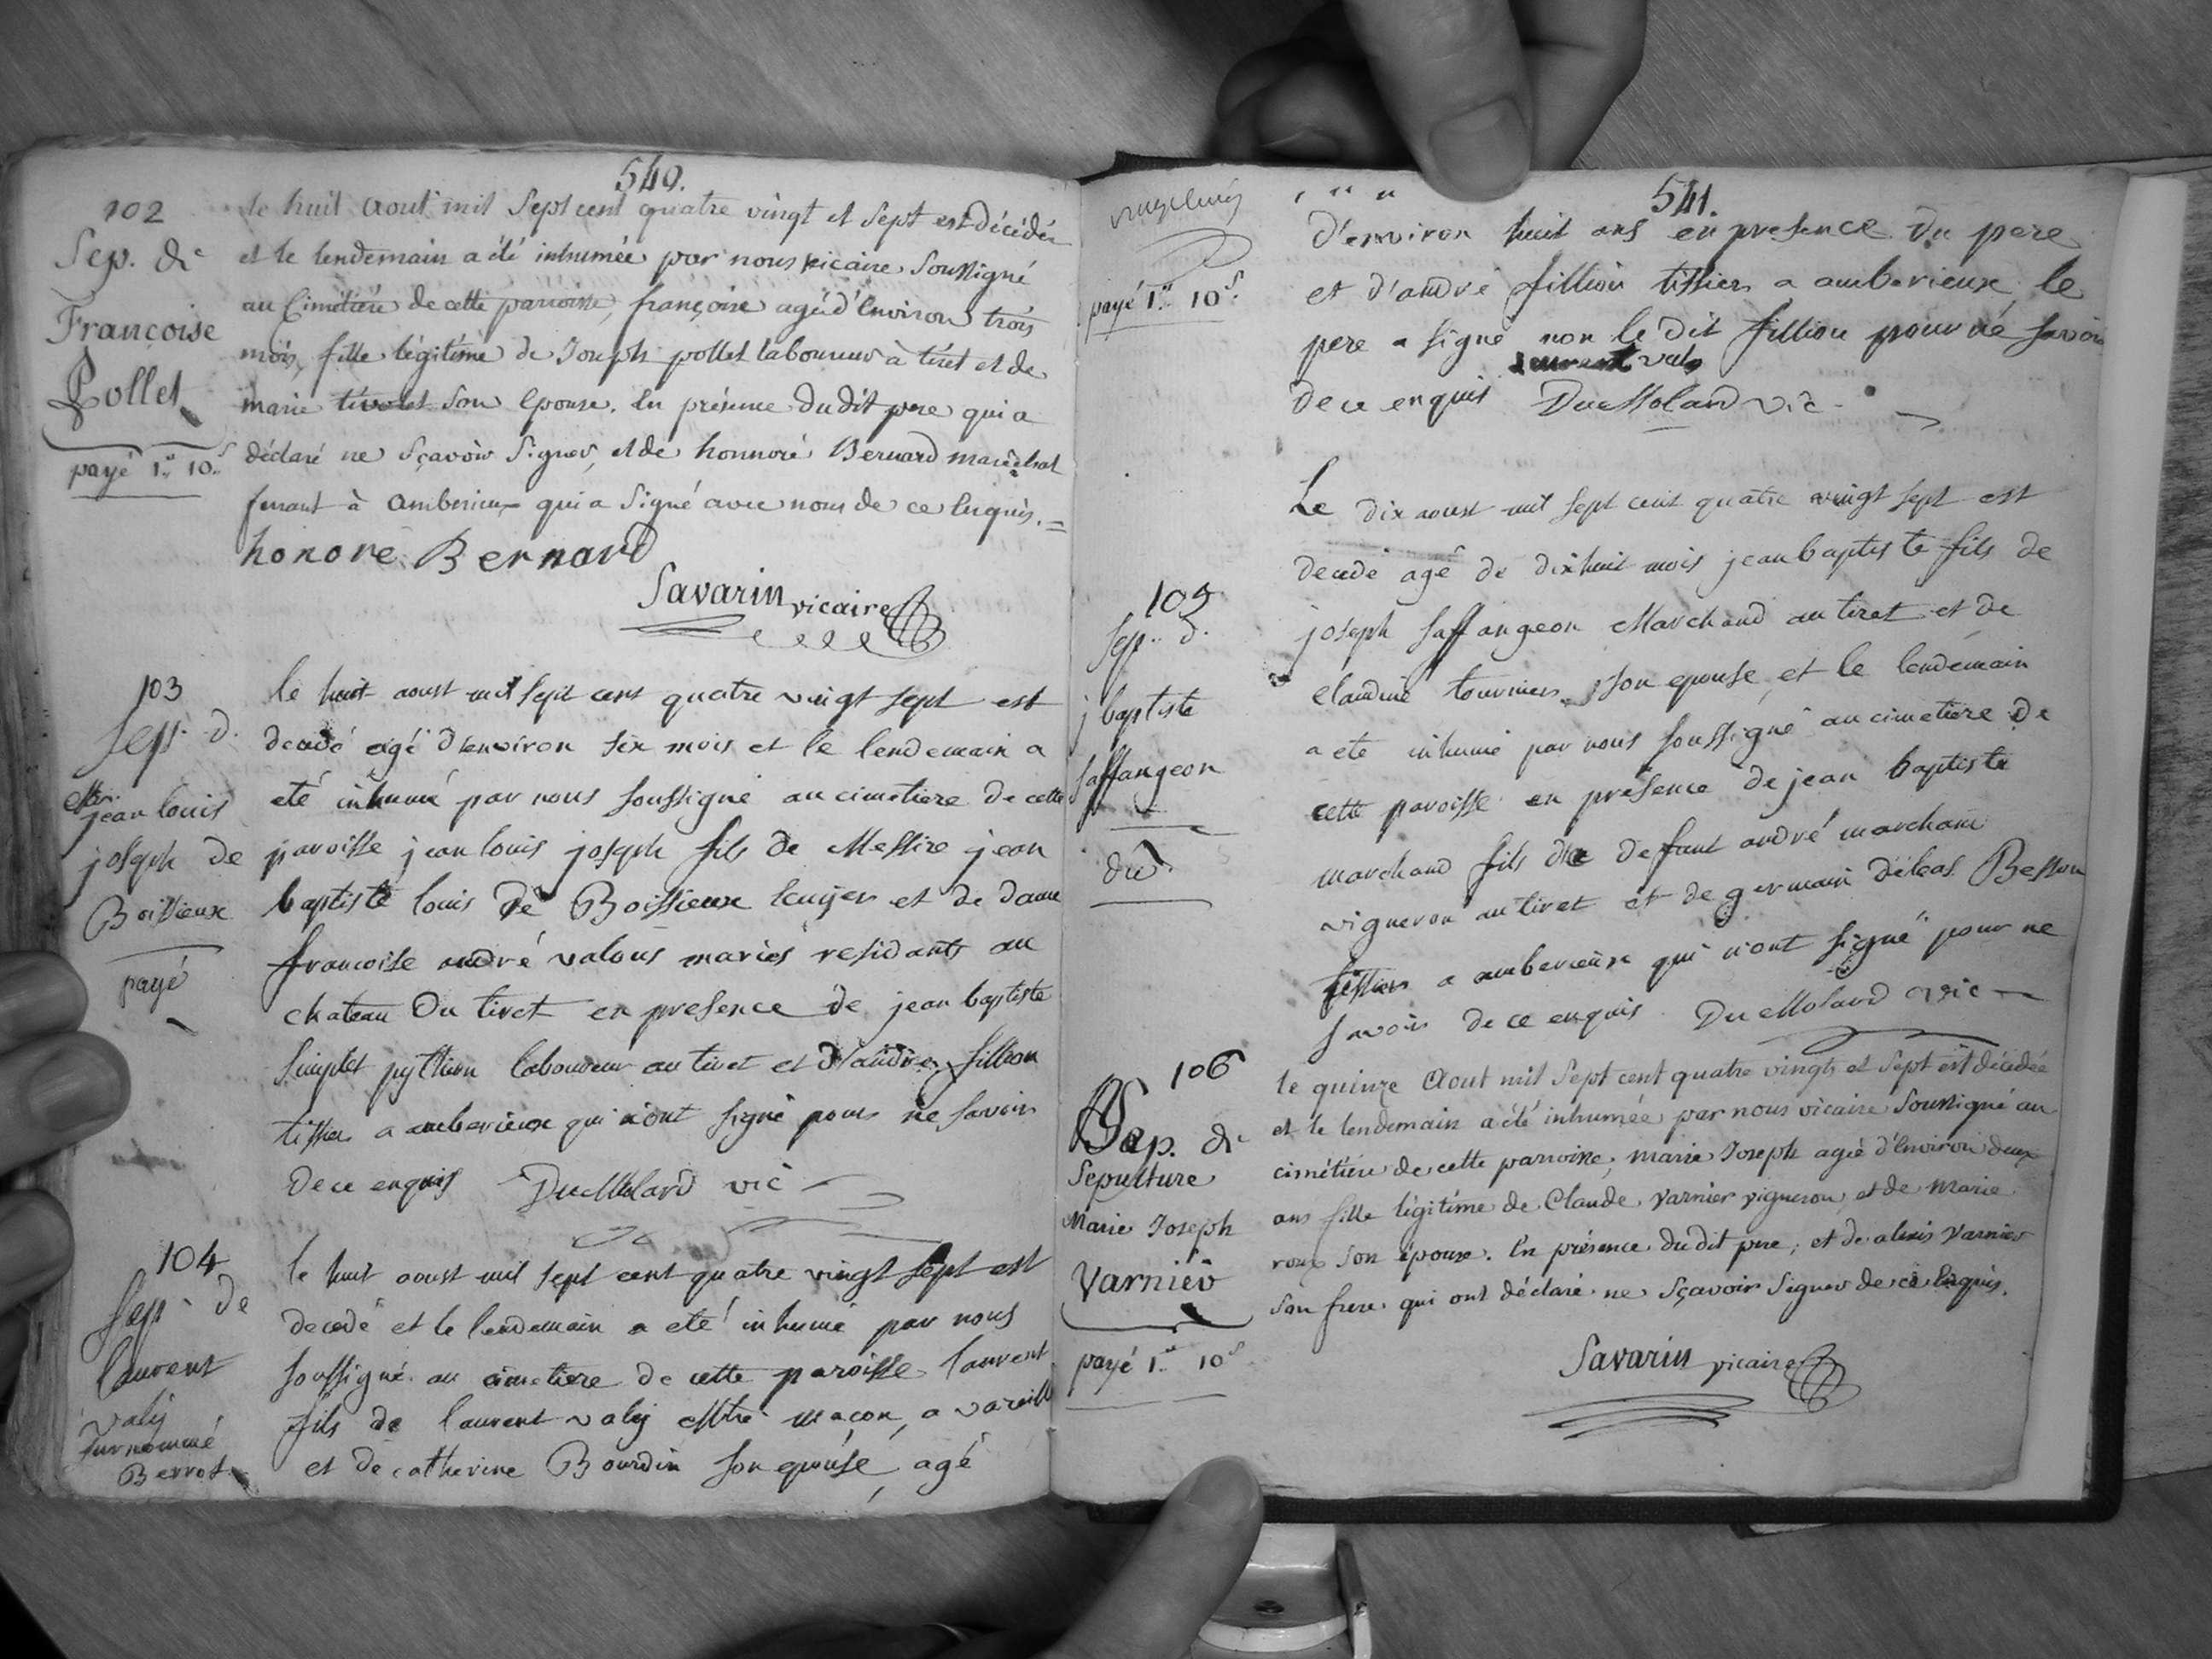 540.
102
Sep. de
Françoise
Pollet
payé 1.tt 10.s
le huit aout mil sept cent quatre vingt et sept est décédée
et le lendemain a été inhumée par nous vicaire soussigné
au Cimétiére de cette parroisse, françoise agéé d'Environ trois
mois, fille légitime de Joseph pollet laboureur à tiret et de
marie tivolet son Epouse. En présence dudit pere qui a
déclaré ne sçavoir signer, et de honnoré Bernard maréchal
ferrant à amberieux qui a signé avec nous de ce Enquis. =
honoré Bernard
Savarin vicaire
103
sep. d.
jean louis
joseph de
Boissieux
payé
le huit aoust mil sept cent quatre vingt sept est
decedé agé d'environ six mois et le lendemain a
eté inhumé par nous soussigné au cimetiere de cette
paroisse jean louis joseph fils de Messire jean
baptiste louis de Boissieux Ecuyer et de dame
francoise andré valous mariés residants au
chateau du tiret en presence de jean baptiste
simplet pythion laboureur au tiret et d'andré fillion
tissier a amberieux qui n'ont signé pour ne savoir
de ce enquis DuMolard vic
104
sep. de
laurent
valy
surnommé
Berrot
le huit aoust mil sept cent quatre vingt sept est
decedé et le lendemain a eté inhumé par nous
soussigné au cimetiere de cette paroisse laurent
fils de laurent valy Mtre maçon, a vareille
et de catherine Bourdin son epouse, agé
541.
payé 1.tt 10.s
d'environ huit ans en presence du pere
et d'andré fillion tissier a amberieux le
pere a signé non le dit fillion pour ne savoir
de ce enquis DuMolard vic
laurent valy
105
sep. d.
j baptiste
saffangeon
du
Le dix aoust mil sept cent quatre vingt sept est
decedé agé de dixhuit mois jean baptiste fils de
joseph saffangeon Marchand au tiret et de
claudine tournier son epouse et le lendemain
a eté inhumé par nous soussigné au cimetiere de
cette paroisse en présence de jean baptiste
marchand fils de defunt andré marchand
vigneron au tiret et de germain déleas Besson
tissier a amberieux qui n'ont signé pour ne
savoir de ce enquis. DuMolard vic
106
Sep. de
Sepulture
Marie Joseph
Varnier
payé 1.tt 10.s
le quinze aout mil sept cent quatre vingts et sept est décedée
et le lendemain a été inhumée par nous vicaire soussigné au
cimétiére de cette parroisse, marie Joseph agée d'Environ deux
ans fille légitime de Claude varnier vigneron, et de marie
roux son épouse. En présence du dit pere, et de alexis varnier
son frere qui ont déclaré ne sçavoir signer de ce Enquis.
Savarin vicaire